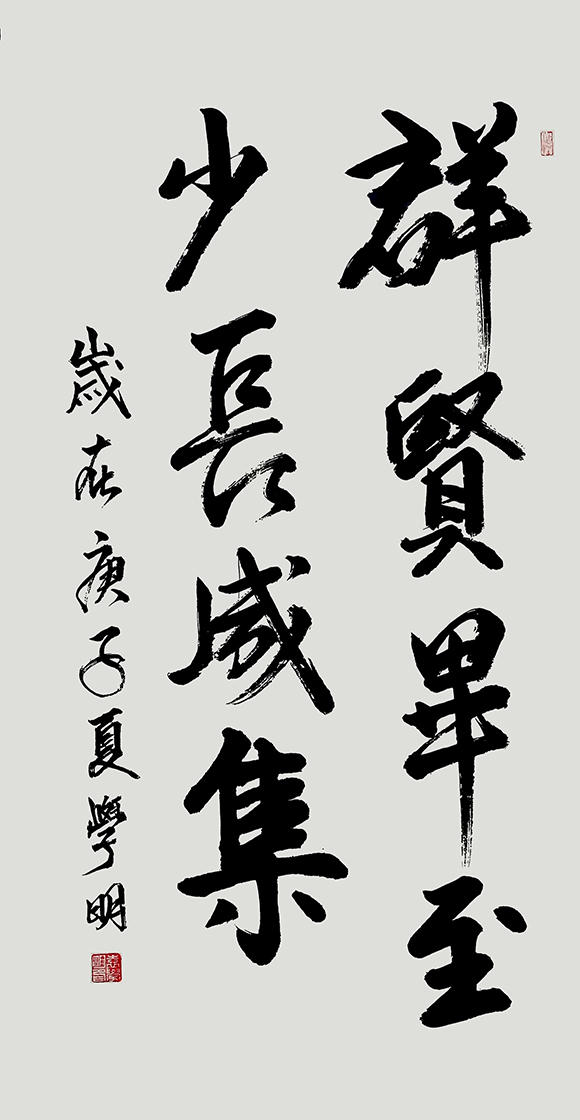 群賢畢至
少長咸集
歲在庚子夏學明